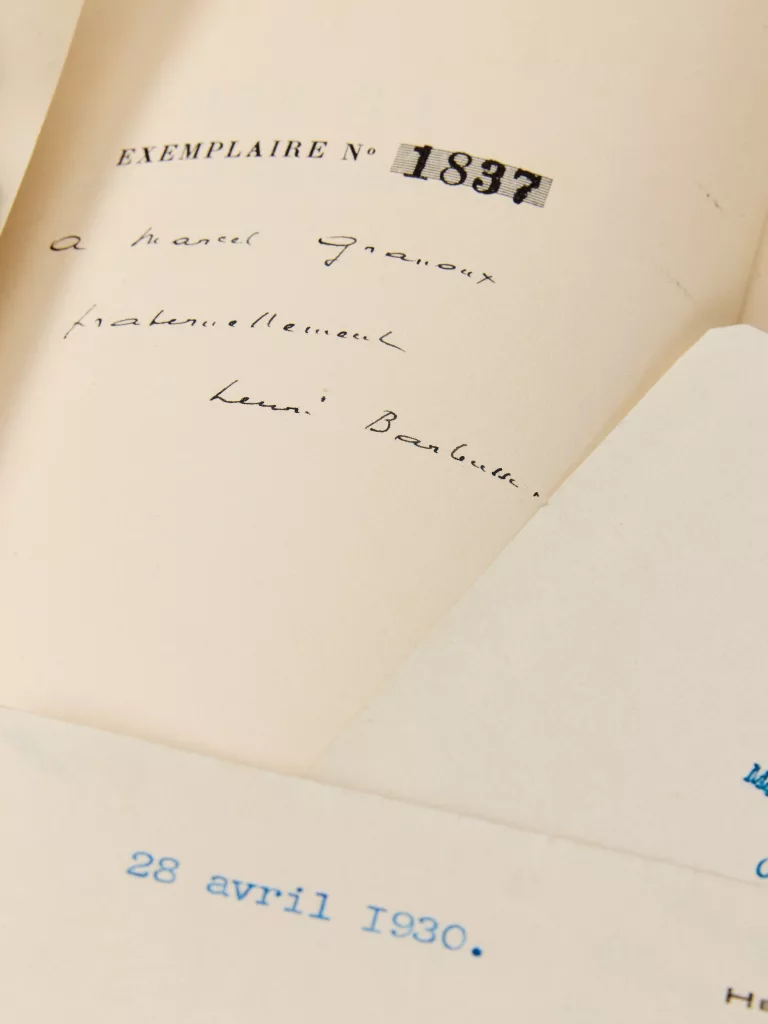 EXEMPLAIRE Nº 1837
a Marcel Granoux
fraternellement
Henri Barbusse.
28 avril 1930.